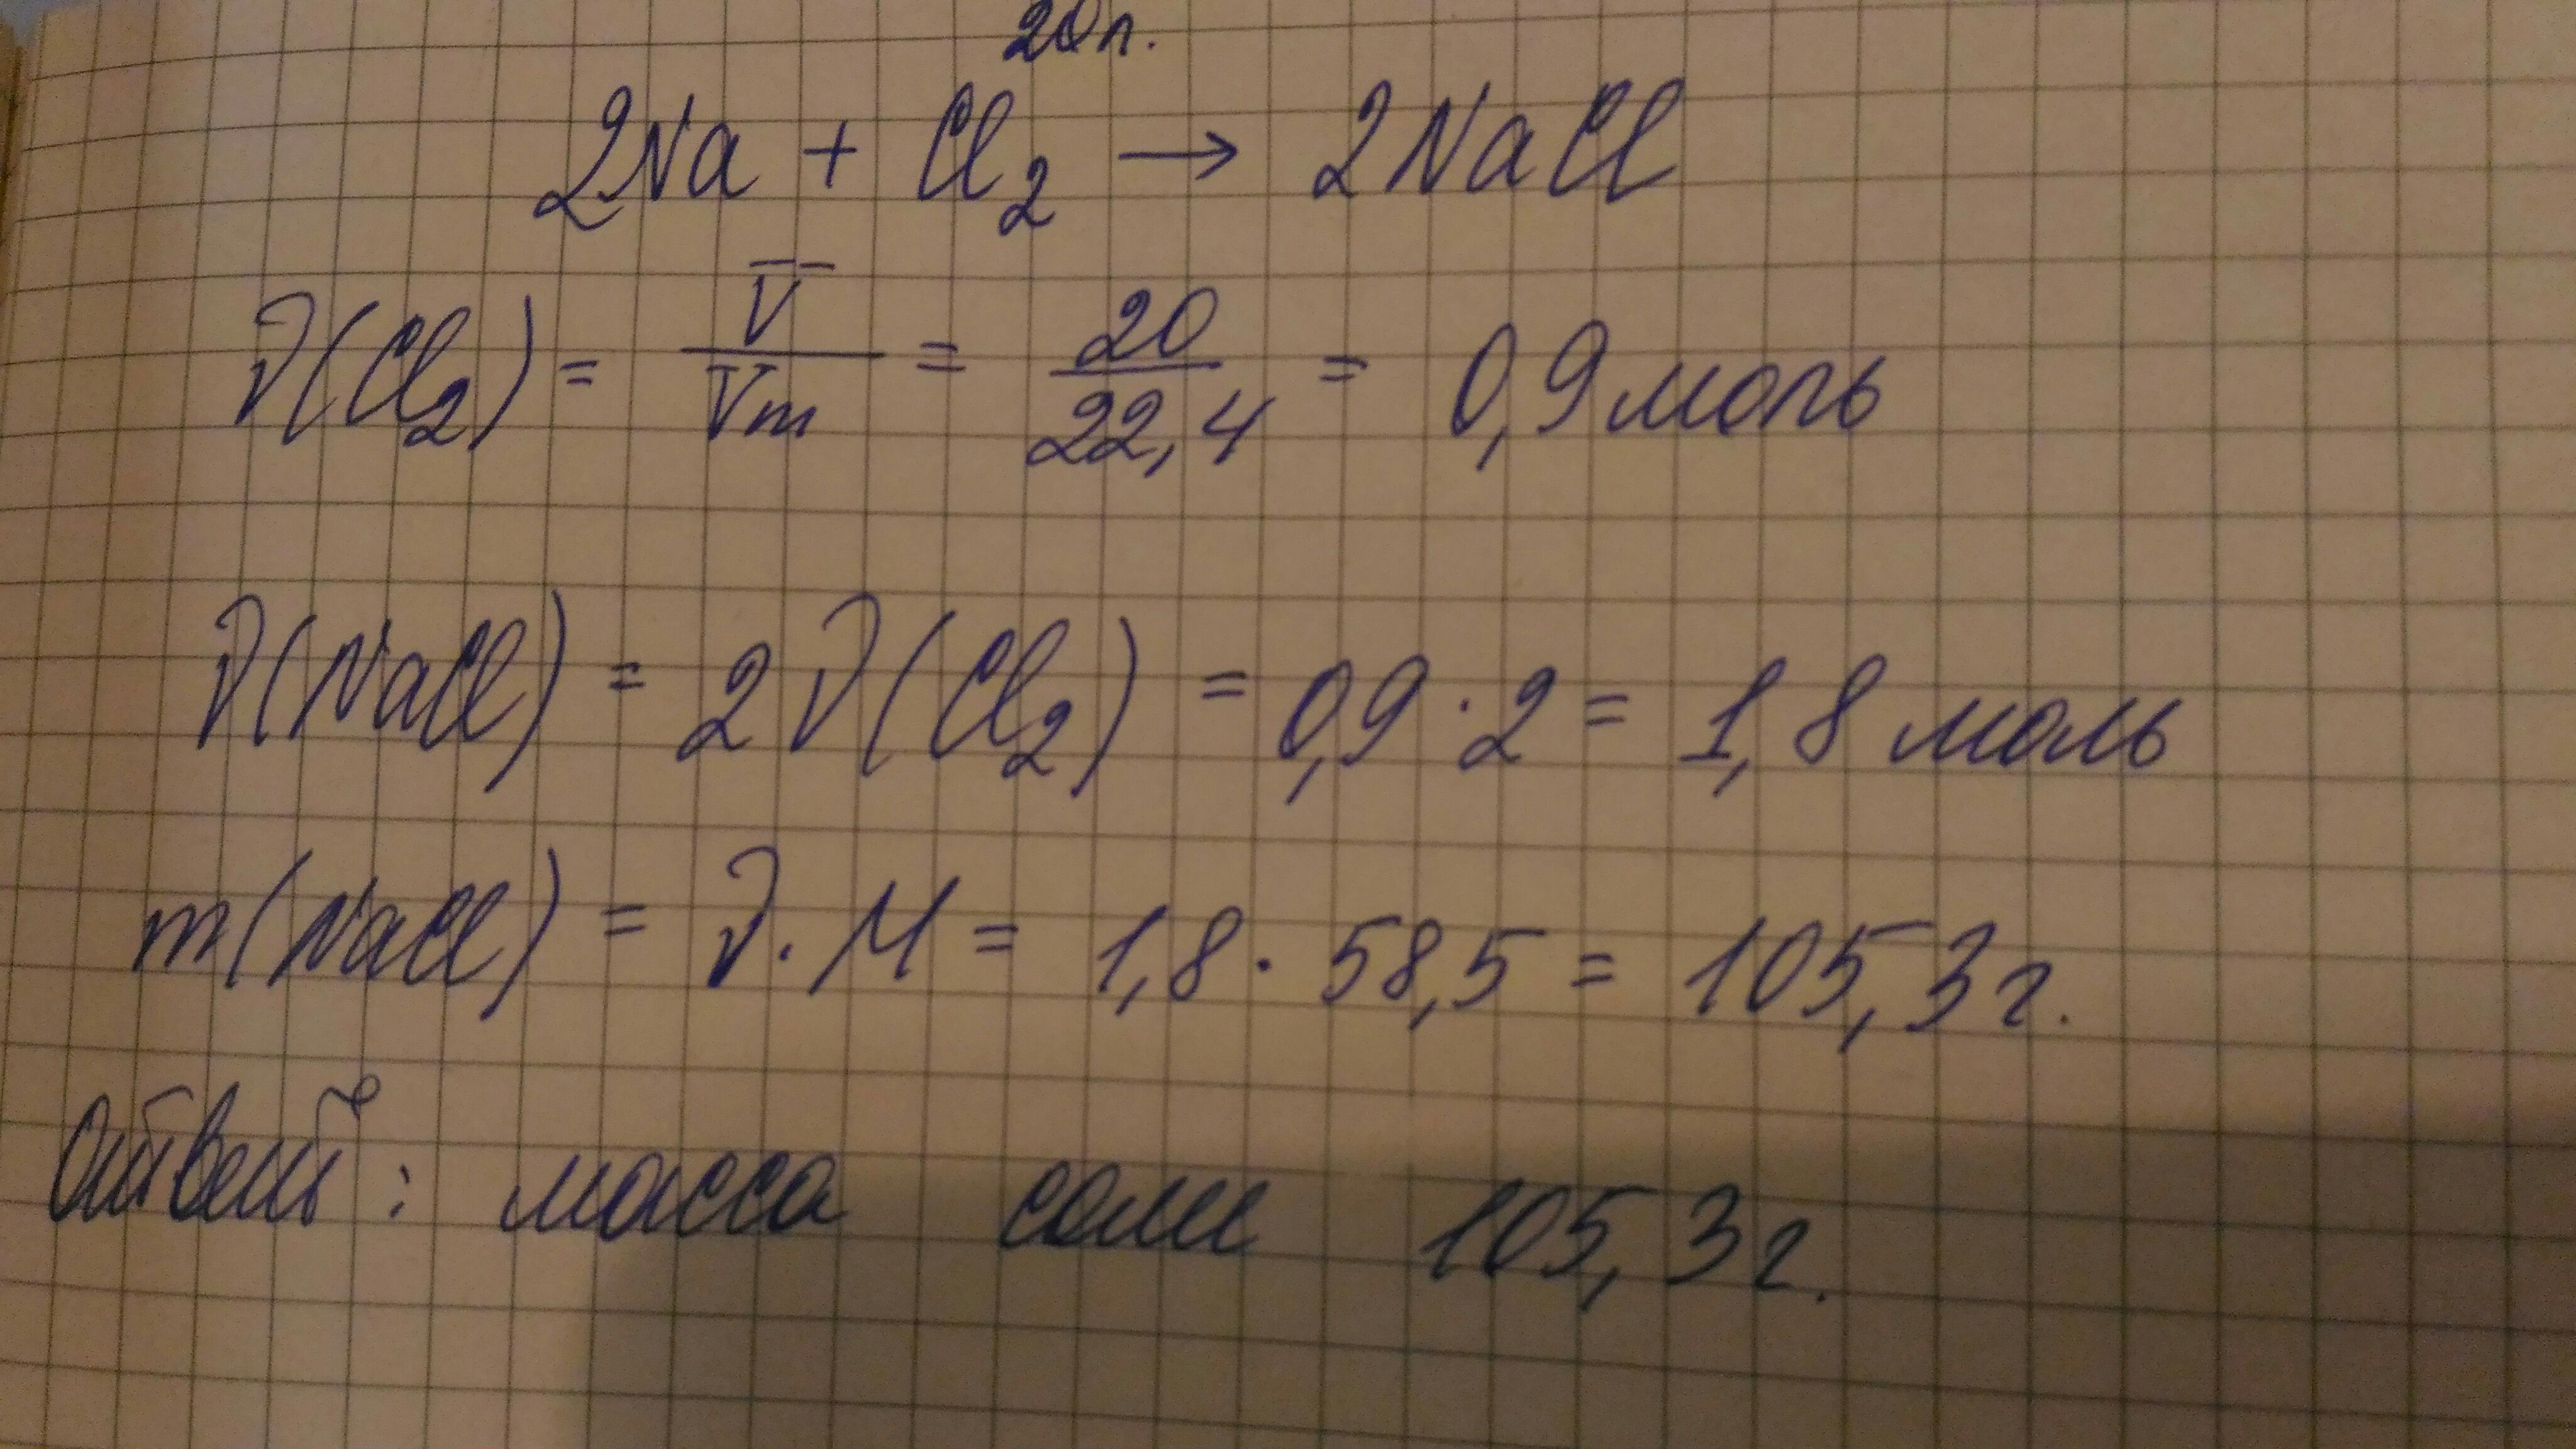 20л.
2Na + Cl₂ → 2NaCl
ν(Cl₂) = V/Vm = 20/22,4 = 0,9 моль
ν(NaCl) = 2ν(Cl₂) = 0,9 · 2 = 1,8 моль
m(NaCl) = ν · M = 1,8 · 58,5 = 105,3 г.
Ответ: масса соли 105,3 г.